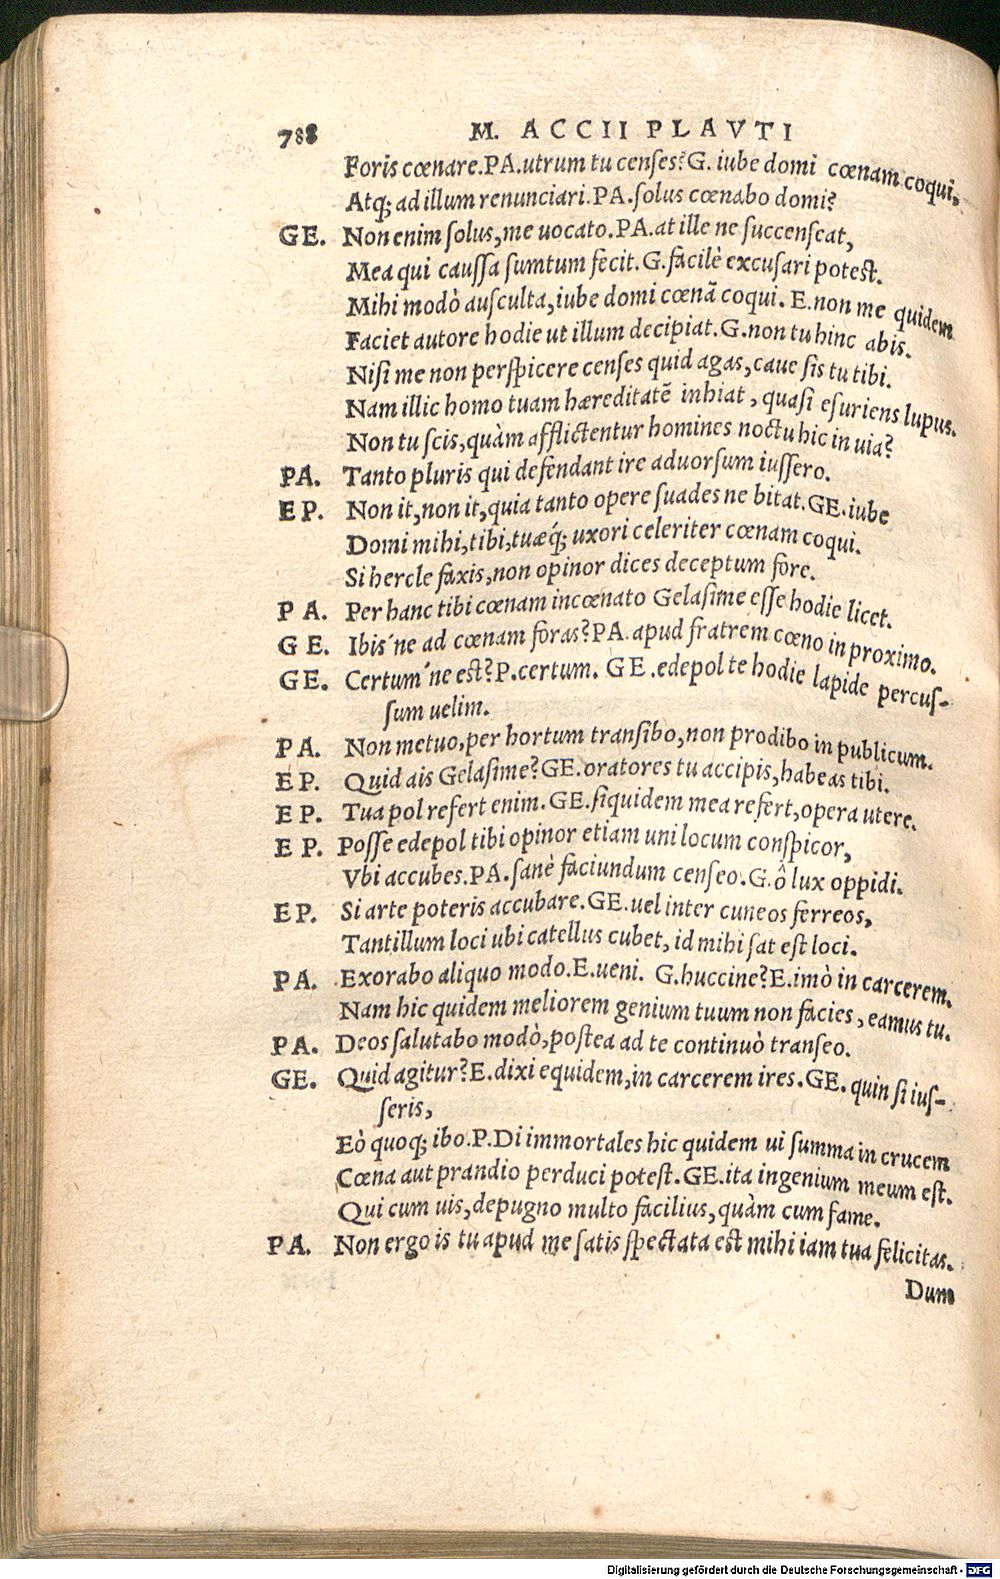 788 M. ACCII PLAVTI
Foris cœnare.PA.utrum tu censes? G. iube domi cœnam coqui,
Atq; ad illum renunciari.PA.solus cœnabo domi?
GE. Non enim solus, me uocato.PA.at ille ne succenseat,
Mea qui caussa sumtum fecit.G.facilè excusari potest.
Mihi modò ausculta, iube domi cœnã coqui. E.non me quidem
Faciet autore hodie ut illum decipiat.G.non tu hinc abis.
Nisi me non perspicere censes quid agas, caue sis tu tibi.
Nam illic homo tuam hæreditatẽ inhiat, quasi esuriens lupus.
Non tu scis, quàm afflictentur homines noctu hic in uia?
PA. Tanto pluris qui defendant ire aduorsum iussero.
EP. Non it, non it, quia tanto opere suades ne bitat.GE.iube
Domi mihi, tibi, tuæq́; uxori celeriter cœnam coqui.
Si hercle faxis, non opinor dices deceptum fore.
PA. Per hanc tibi cœnam incœnato Gelasime esse hodie licet.
GE. Ibis´ne ad cœnam foras? PA. apud fratrem cœno in proximo.
GE. Certum´ne est? P.certum. GE.edepol te hodie lapide percus-
sum uelim.
PA. Non metuo, per hortum transibo, non prodibo in publicum.
EP. Quid ais Gelasime? GE.oratores tu accipis, habeas tibi.
EP. Tua pol refert enim.GE.siquidem mea refert, opera utere.
EP. Posse edepol tibi opinor etiam uni locum conspicor,
Vbi accubes.PA.sanè faciundum censeo.G.ô lux oppidi.
EP. Si arte poteris accubare.GE.uel inter cuneos ferreos,
Tantillum loci ubi catellus cubet, id mihi sat est loci.
PA. Exorabo aliquo modo.E.ueni. G.huccine? E.imò in carcerem.
Nam hic quidem meliorem genium tuum non facies, eamus tu.
PA. Deos salutabo modò, postea ad te continuò transeo.
GE. Quid agitur? E.dixi equidem, in carcerem ires.GE.quin si ius-
seris,
Eò quoq; ibo.P.Di immortales hic quidem ui summa in crucem
Cœna aut prandio perduci potest.GE.ita ingenium meum est.
Qui cum uis, depugno multo facilius, quàm cum fame.
PA. Non ergo is tu apud me satis spectata est mihi iam tua felicitas.
Dum
Digitalisierung gefördert durch die Deutsche Forschungsgemeinschaft - DFG